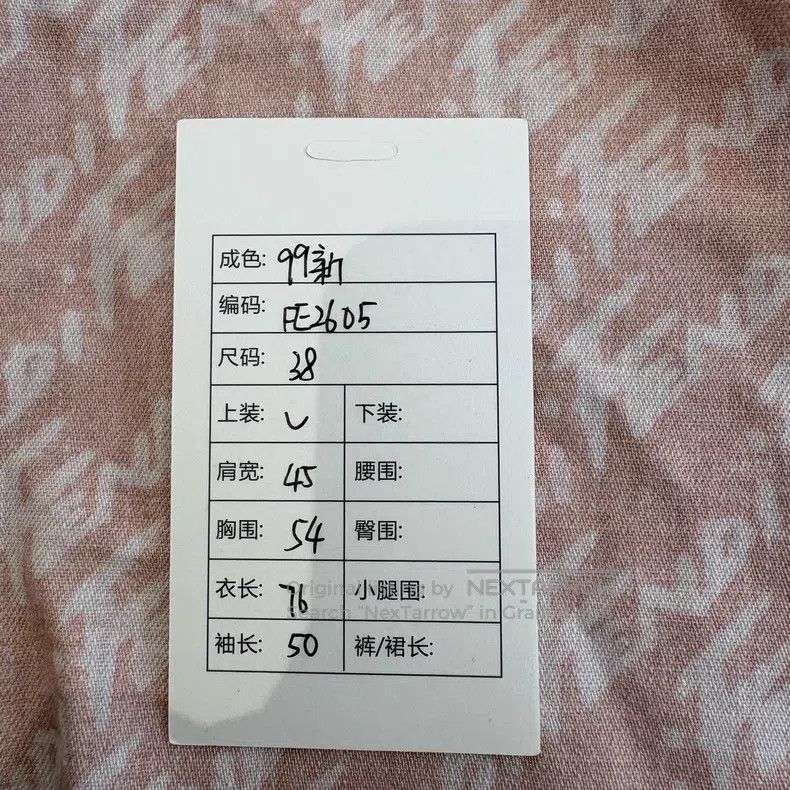 成色: 99新
编码: FE2605
尺码: 38
上装: ✓ 下装:
肩宽: 45 腰围:
胸围: 54 臀围:
衣长: 76 小腿围:
袖长: 50 裤/裙长:
Original by NEXTA
Search "NexTarrow" in Gra